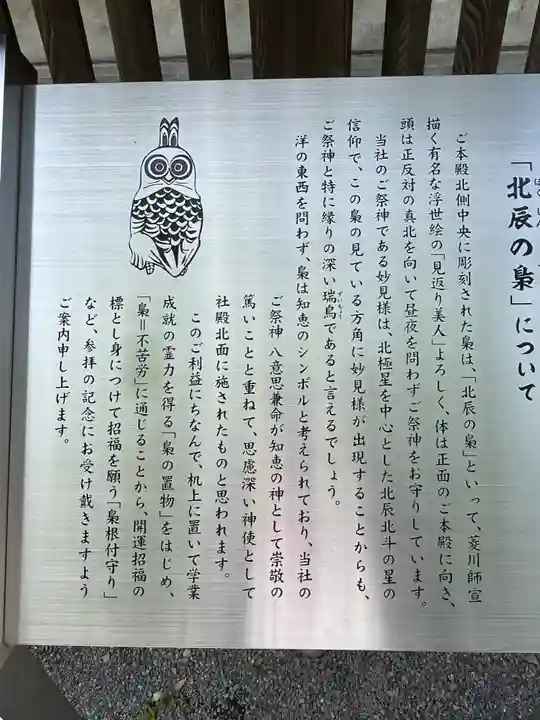 「北辰の梟」について
ご本殿北側中央に彫刻された梟は、「北辰の梟」といって、菱川師宣
描く有名な浮世絵の「見返り美人」よろしく、体は正面のご本殿に向き、
頭は正反対の真北を向いて昼夜を問わずご祭神をお守りしています。
当社のご祭神である妙見様は、北極星を中心とした北辰北斗の星の
信仰で、この梟の見ている方角に妙見様が出現することからも、
ご祭神と特に縁りの深い瑞鳥であると言えるでしょう。
洋の東西を問わず、梟は知恵のシンボルと考えられており、当社の
ご祭神 八意思兼命が知恵の神として崇敬の
篤いことと重ねて、思慮深い神使として
社殿北面に施されたものと思われます。
このご利益にちなんで、机上に置いて学業
成就の霊力を得る「梟の置物」をはじめ、
「梟＝不苦労」に通じることから、開運招福の
標とし身につけて招福を願う「梟根付守り」
など、参拝の記念にお受け戴きますよう
ご案内申し上げます。